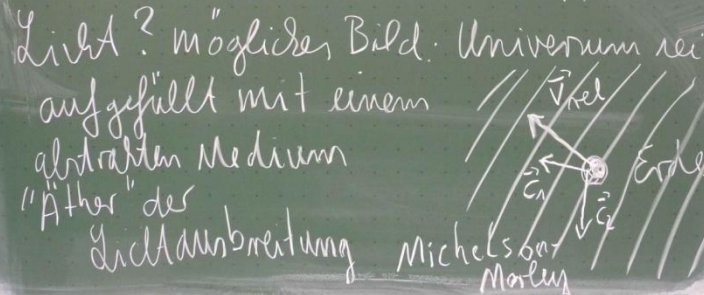 Licht? mögliches Bild: Universum sei
aufgefüllt mit einem
abstrakten Medium
"Äther" der
Lichtausbreitung
v⃗rel
c⃗1
c⃗2
Erde
Michelson-
Morley